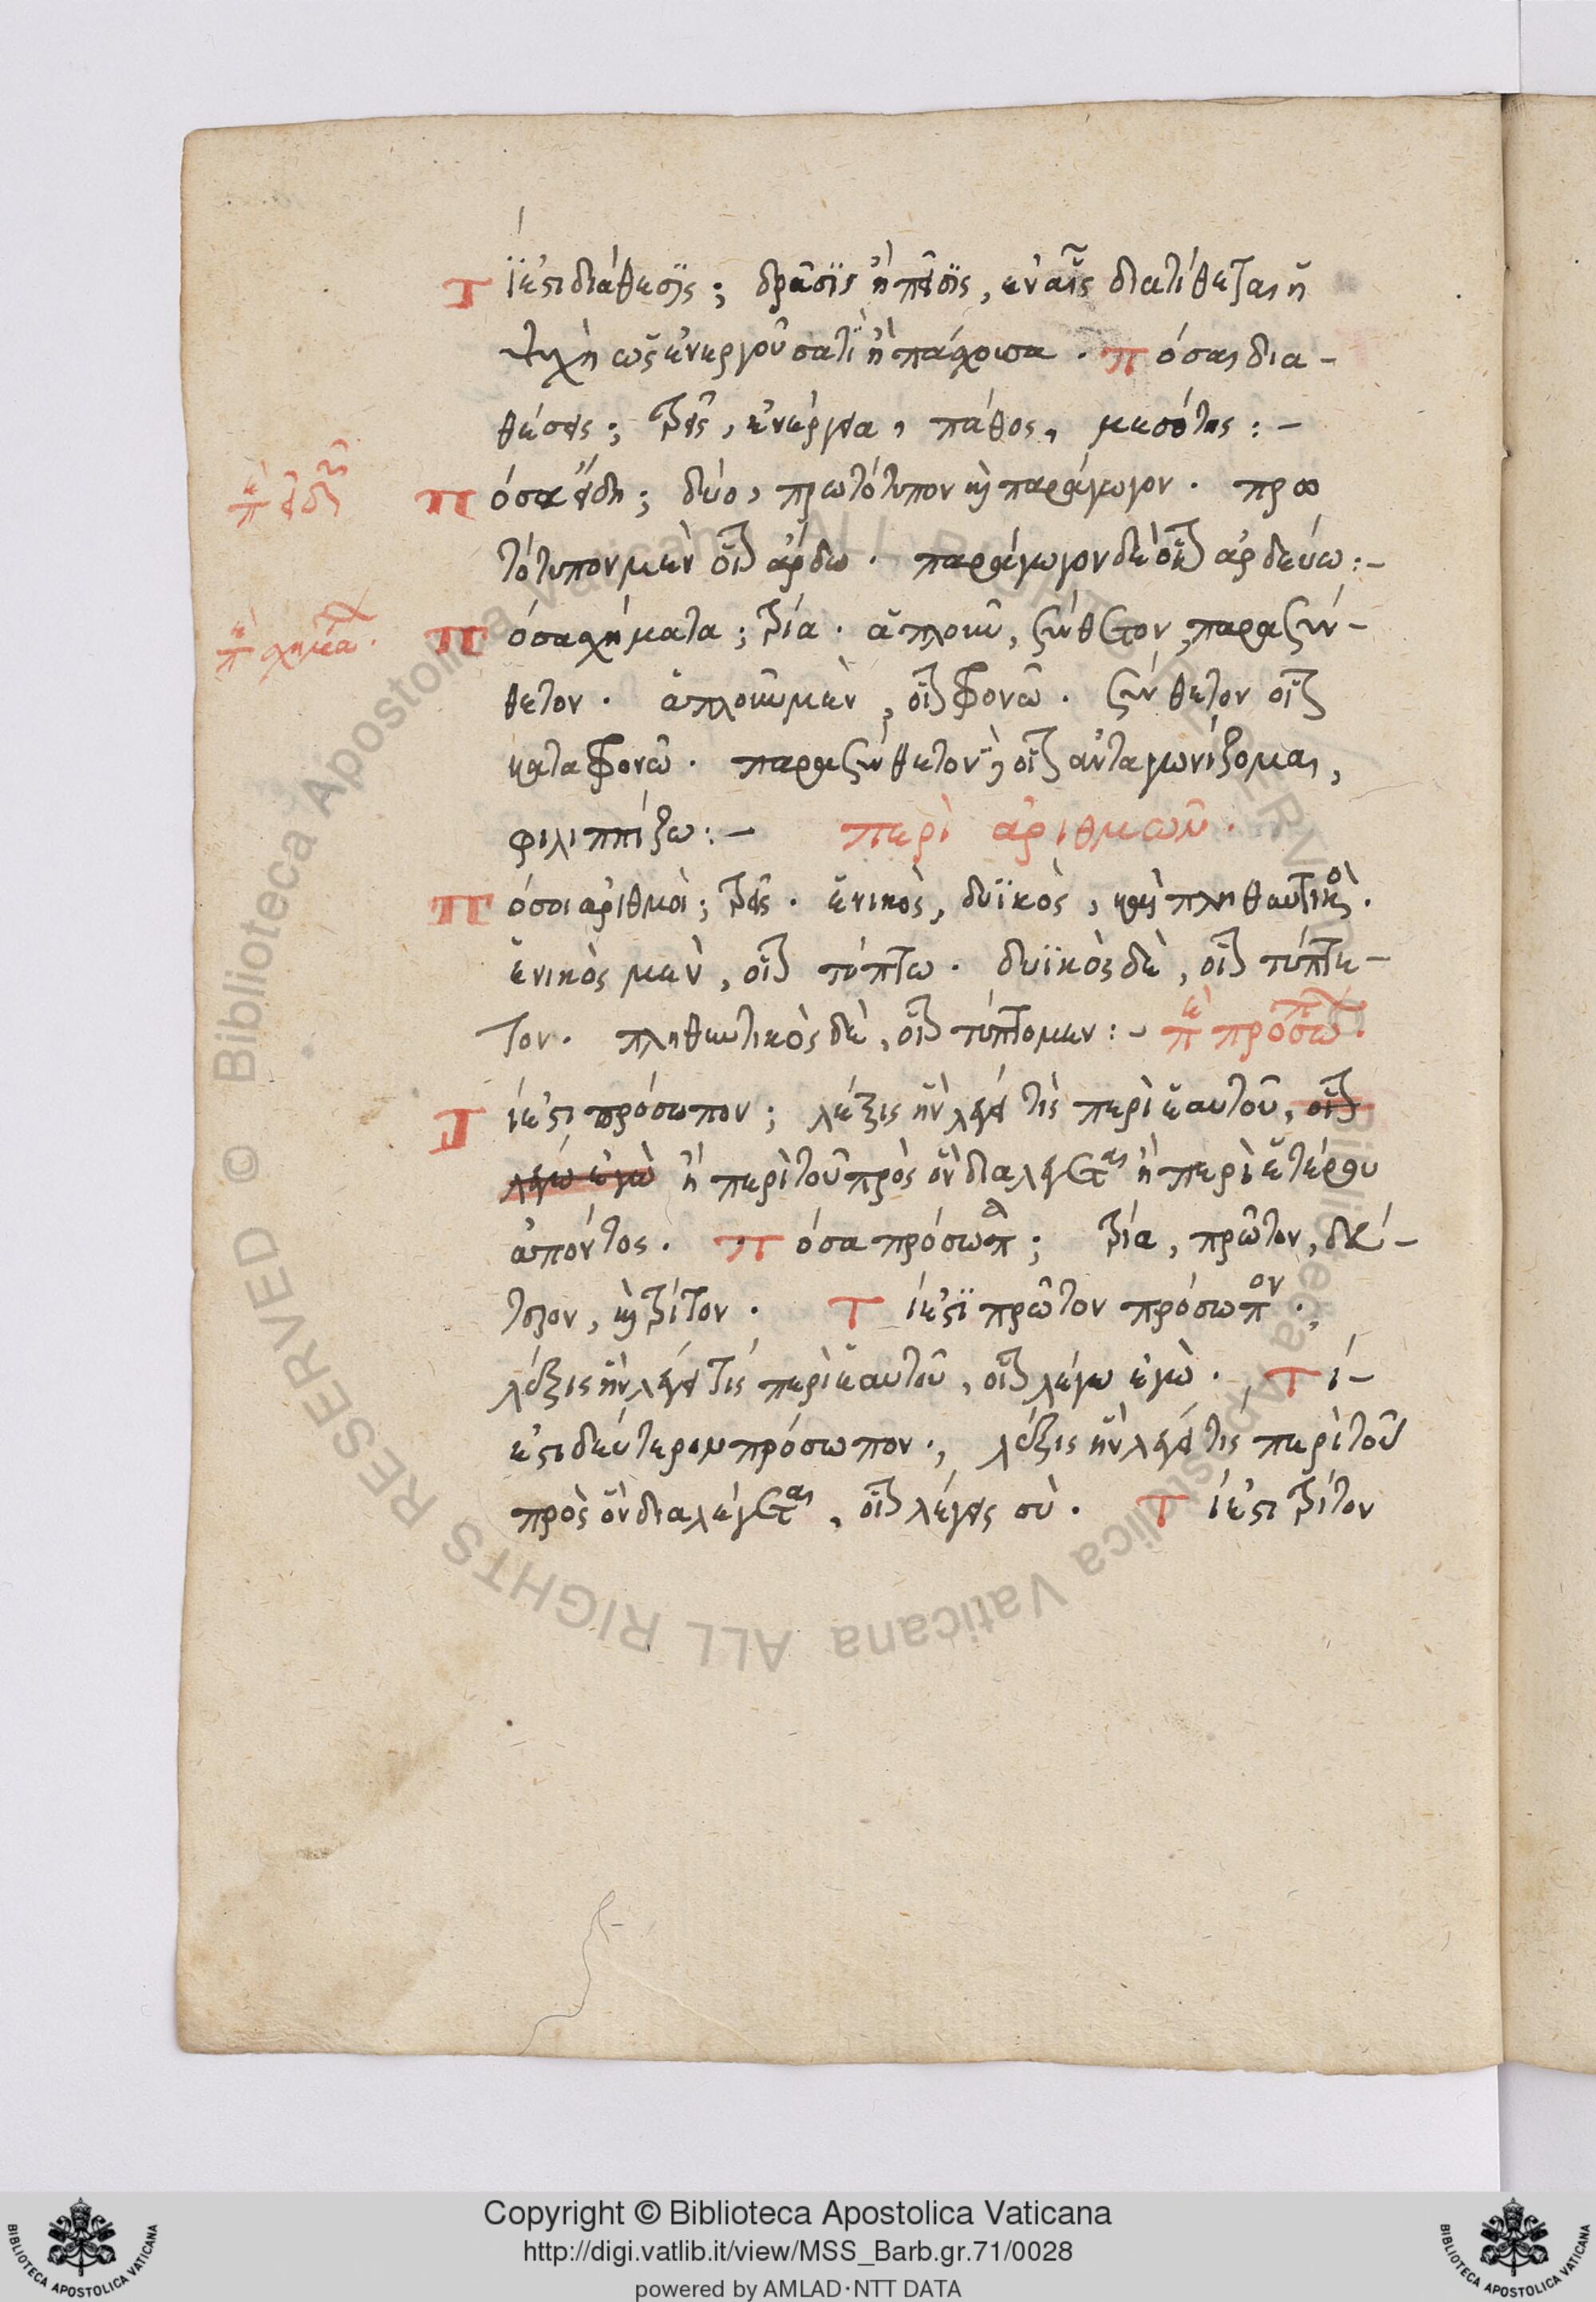 Τί ἐστι διάθεσις; δρᾶσις ἢ πεῖσις, ἐν αἷς διατίθεται ἡ
ψυχὴ ὡς ἐνεργοῦσά τι ἢ πάσχουσα. Πόσαι δια-
θέσεις; τρεῖς, ἐνέργεια, πάθος, μεσότης:-
περὶ εἰδῶν
Πόσα εἴδη; δύο, πρωτότυπον καὶ παράγωγον. πρω
τότυπον μὲν οἷον ἄρδω. παράγωγον δὲ οἷον ἀρδεύω:-
περὶ σχημάτων.
Πόσα σχήματα; τρία. ἁπλοῦν, σύνθετον, παρασύν-
θετον. ἁπλοῦν μὲν, οἷον φρονῶ. σύνθετον οἷον
καταφρονῶ. παρασύνθετον δὲ οἷον ἀνταγωνίζομαι,
φιλιππίζω:- περὶ ἀριθμῶν.
Πόσοι ἀριθμοὶ; τρεῖς. ἑνικὸς, δυϊκὸς, καὶ πληθυντικὸς.
ἑνικὸς μὲν, οἷον τύπτω. δυϊκὸς δὲ, οἷον τύπτε-
τον. πληθυντικὸς δὲ, οἷον τύπτομεν:- περὶ προσώπων.
Τί ἐστι πρόσωπον; λέξις ἣν λέγει τὶς περὶ ἑαυτοῦ, οἷον
λέγω ἐγὼ ἢ περὶ τοῦ πρὸς ὃν διαλέγεται ἢ περὶ ἑτέρου
ἀπόντος. Πόσα πρόσωπα; τρία, πρῶτον, δεύ-
τερον, καὶ τρίτον. Τί ἐστι πρῶτον πρόσωπον;
λέξις ἣν λέγει τὶς περὶ ἑαυτοῦ, οἷον λέγω ἐγὼ. Τί-
ἐστι δεύτερον πρόσωπον; λέξις ἣν λέγει τὶς περὶ τοῦ
πρὸς ὃν διαλέγεται, οἷον λέγεις σὺ. Τί ἐστι τρίτον
© Biblioteca Apostolica Vaticana ALL RIGHTS RESERVED
Copyright © Biblioteca Apostolica Vaticana
http://digi.vatlib.it/view/MSS_Barb.gr.71/0028
powered by AMLAD·NTT DATA
BIBLIOTECA APOSTOLICA VATICANA
BIBLIOTECA APOSTOLICA VATICANA